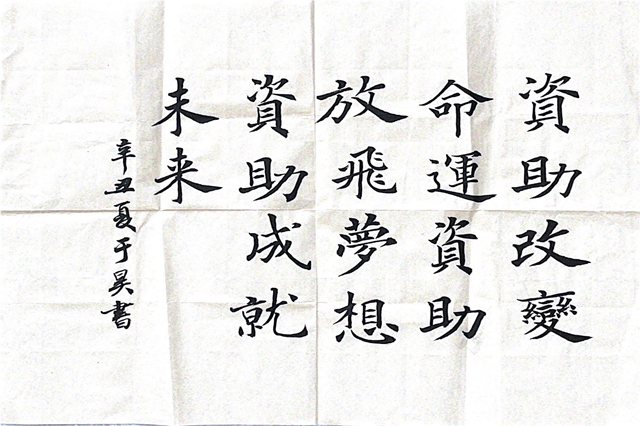 資助改變
命運資助
放飛夢想
資助成就
未来
辛丑夏于昊書